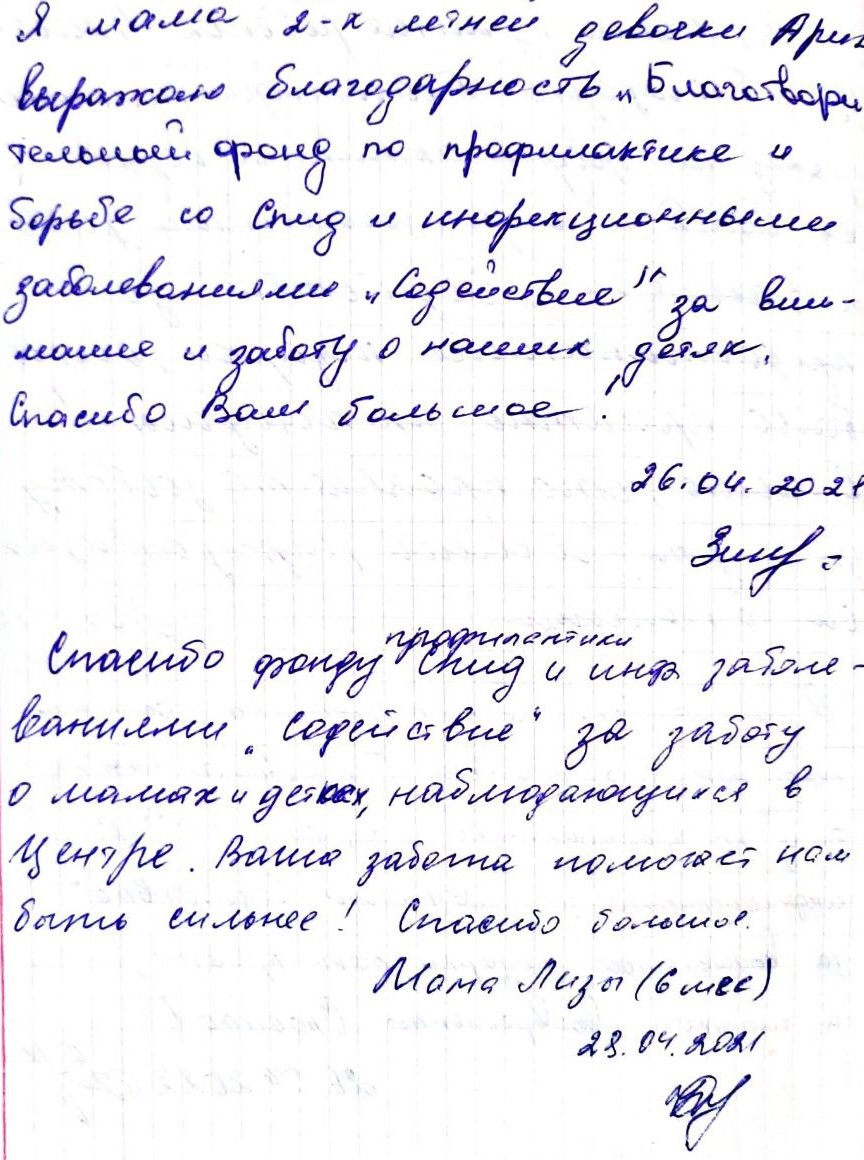 Я мама 2-х летней девочки Арин
выражаю благодарность „Благотвори
тельный фонд по профилактике и
борьбе со Спид и инфекционными
заболеваниями „Содействие" за вни-
мание и заботу о наших детях.
Спасибо Вам большое.
26.04.2021
Спасибо фонду профилактики Спид и инф заболе-
ваниями „Содействие" за заботу
о мамах и детках, наблюдающихся в
Центре. Ваша забота помогает нам
быть сильнее! Спасибо большое.
Мама Лизы (6 мес)
23.04.2021